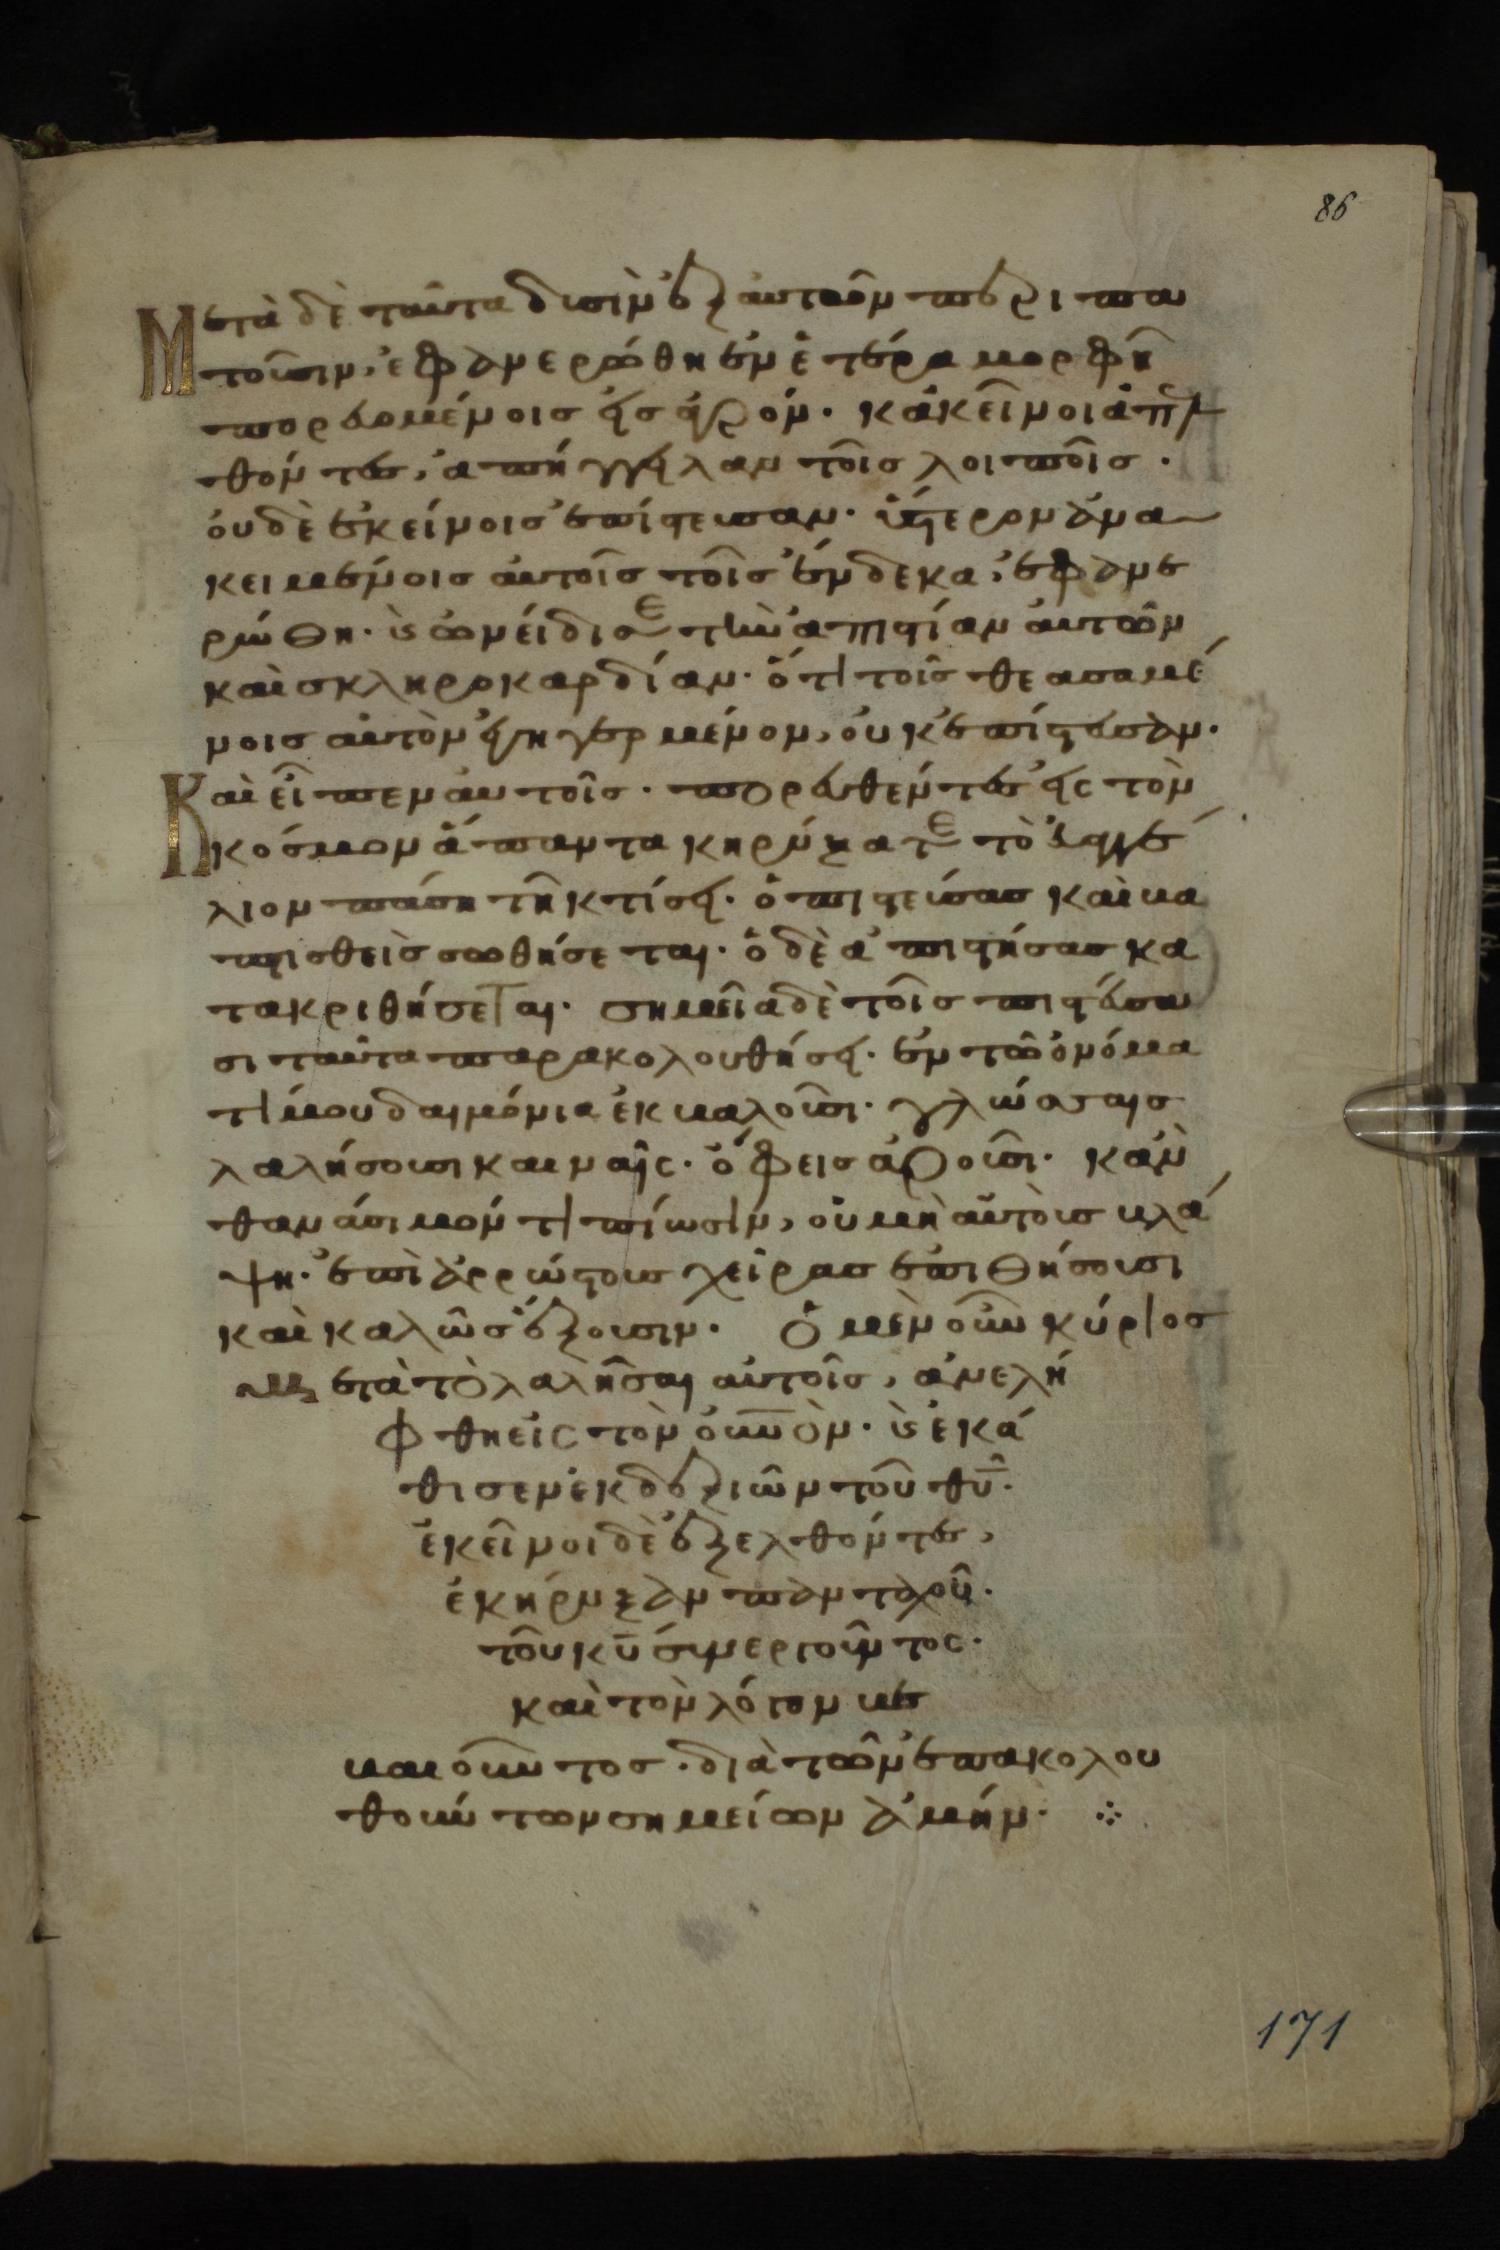 86
Μετὰ δὲ ταῦτα δυσὶν ἐξ αὐτῶν περιπα
τοῦσιν, ἐφανερώθη ἐν ἑτέρα μορφῆ
πορευομένοις εἰς ἀγρόν· κἀκεῖνοι ἀπελ
θόντες, ἀπήγγειλαν τοῖς λοιποῖς·
οὐδὲ ἐκείνοις ἐπίστευσαν· ὕστερον ἀνα
κειμένοις αὐτοῖς τοῖς ἕνδεκα, ἐφανε
ρώθη· κ ὠνείδισε τὴν ἀπιστίαν αὐτῶν
καὶ σκληροκαρδίαν· ὅτι τοῖς θεασαμέ
νοις αὐτὸν ἐγηγερμένον, οὐκ ἐπίστευσαν·
Καὶ εἶπεν αὐτοῖς· πορευθέντες εἰς τὸν
κόσμον ἅπαντα κηρύξατε τὸ εὐαγγέ
λιον πάση τῆ κτίσει· ὁ πιστεύσας καὶ βα
πτισθεὶς σωθήσεται· ὁ δὲ ἀπιστήσας κα
τακριθήσεται· σημεῖα δὲ τοῖς πιστεύσα
σι ταῦτα παρακολουθήσει· ἐν τῶ ὀνόμα
τί μου δαιμόνια ἐκβαλοῦσι· γλώσσαις
λαλήσουσι καιναῖς· ὄφεις ἀροῦσι· κἂν
θανάσιμόν τι πίωσιν, οὐ μὴ αὐτοὺς βλά
ψη· ἐπὶ ἀρρώστους χεῖρας ἐπιθήσουσι
καὶ καλῶς ἕξουσιν· Ὁ μὲν οὖν κύριος
μετὰ τὸ λαλῆσαι αὐτοῖς, ἀνελή
φθη εἰς τὸν οὐνὸν· κ ἐκά
θισεν ἐκ δεξιῶν τοῦ θυ·
ἐκεῖνοι δὲ ἐξελθόντες,
ἐκήρυξαν πανταχοῦ·
τοῦ κυ συνεργοῦντος·
καὶ τὸν λόγον βε
βαιοῦντος· διὰ τῶν ἐπακολου
θούντων σημείων ἀμήν· ⁘
171